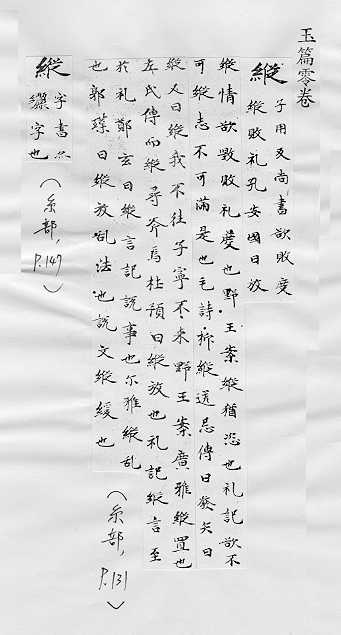 玉篇零卷
縱 子用反尚書欲敗度
縱敗礼孔安國曰放
縱情欲毀敗礼度也野王案縱猶恣也礼記欲不
可縱志不可滿是也毛詩抑縱送忌傳曰發矢曰
縱又曰縱我不往子寧不来野王案廣雅縱置也
左氏傳而縱尋斧焉杜預曰縱放也礼記縱言至
於礼鄭玄曰縱言記説事也尓雅縱乱
也郭璞曰縱放乱法也説文縱緩也
(糸部, P.131)
字書亦
縱字也
(糸部, P.147)